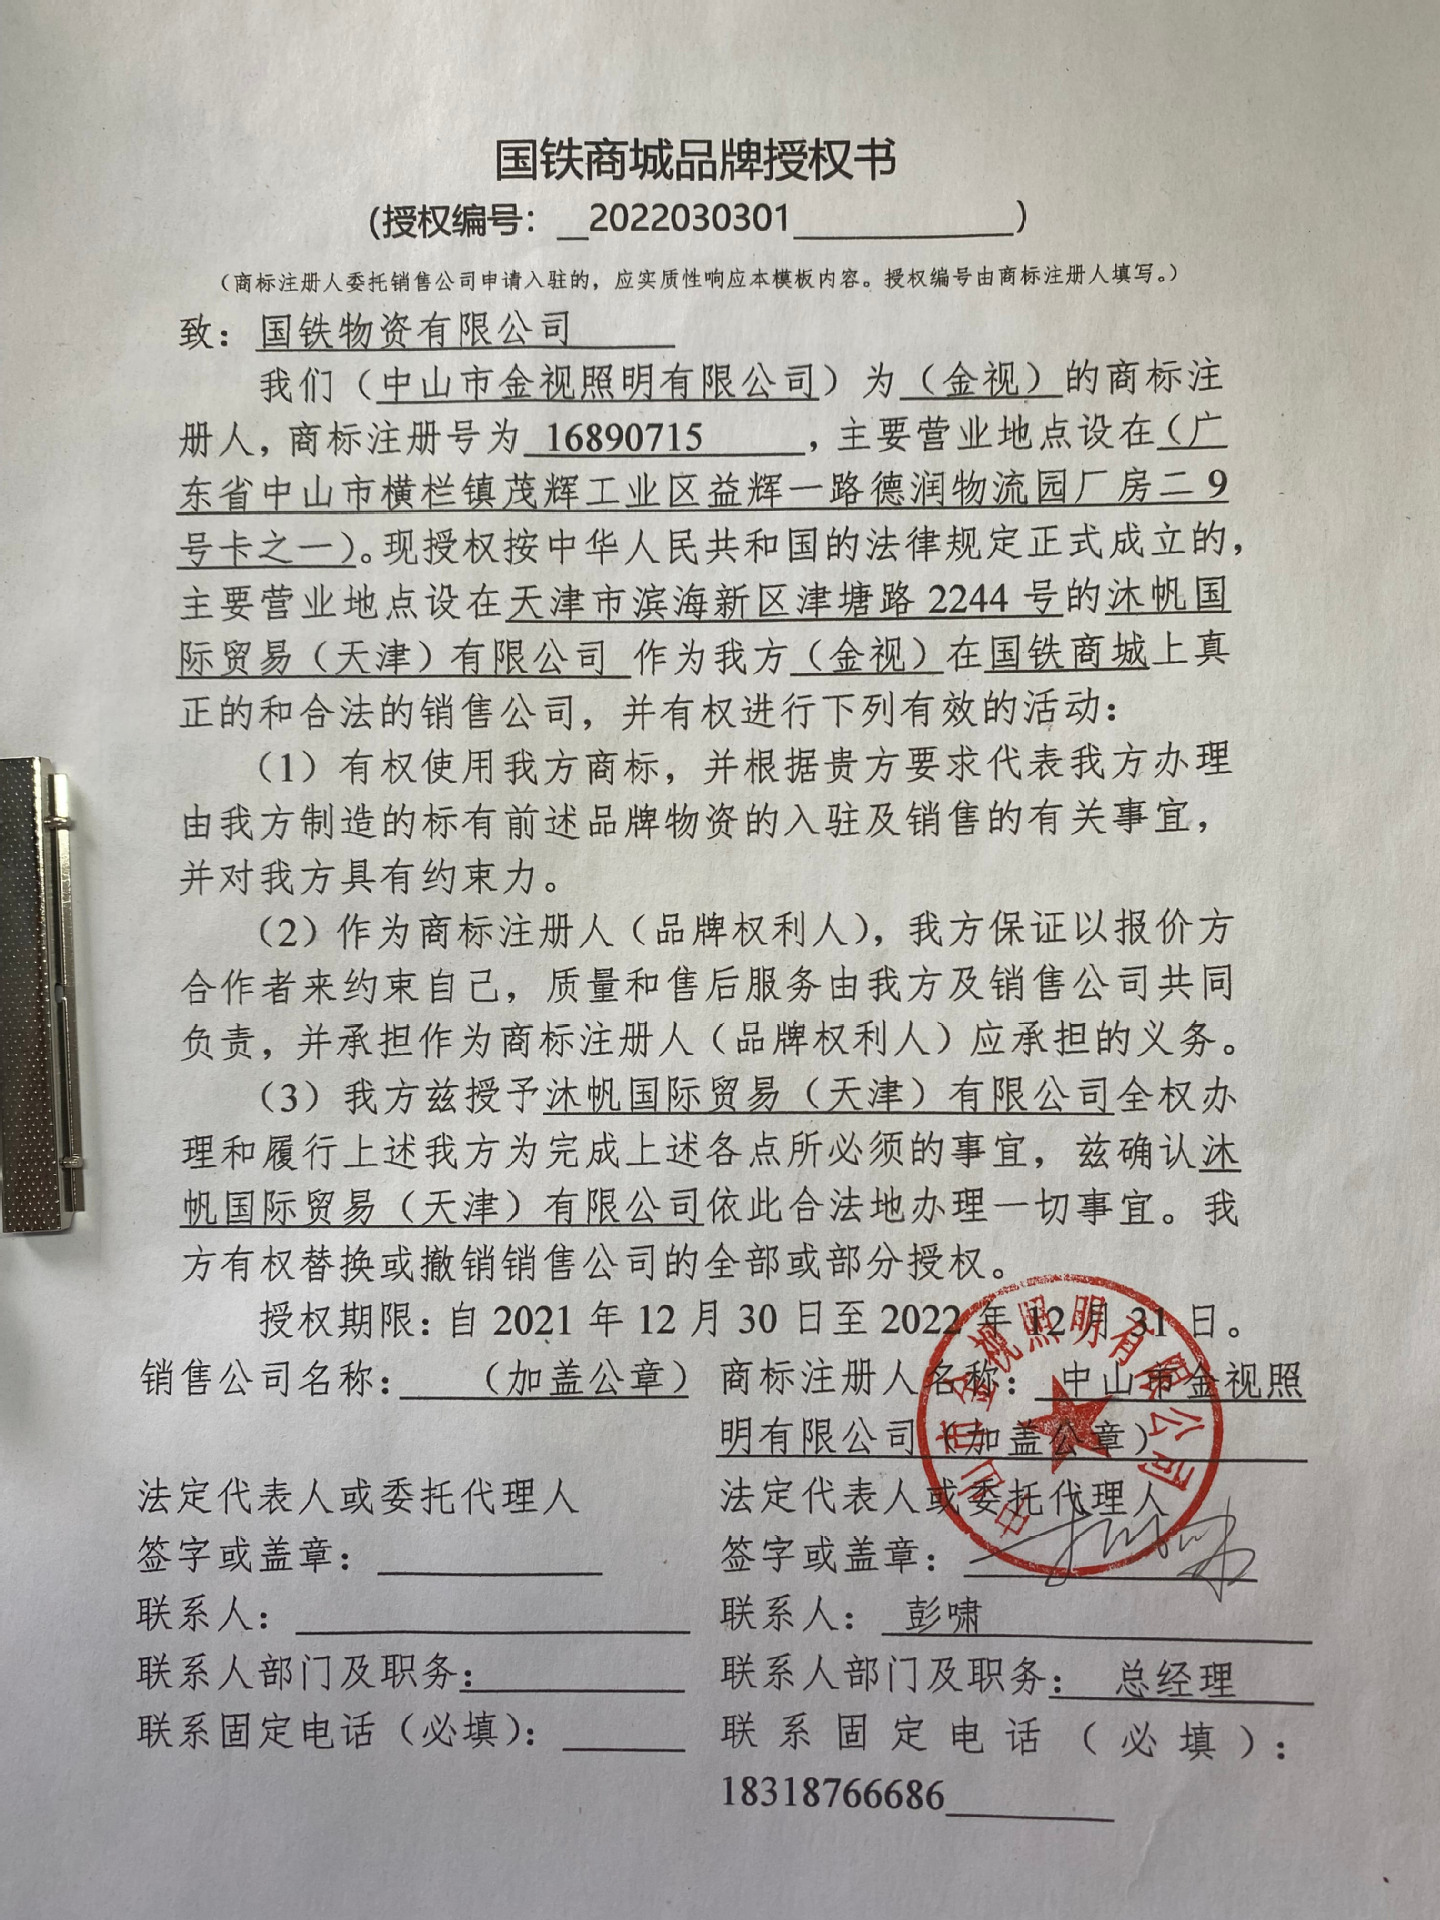 国铁商城品牌授权书
(授权编号：__2022030301____________)
（商标注册人委托销售公司申请入驻的，应实质性响应本模板内容。授权编号由商标注册人填写。）
致：国铁物资有限公司
我们（中山市金视照明有限公司）为（金视）的商标注
册人，商标注册号为 16890715 ，主要营业地点设在（广
东省中山市横栏镇茂辉工业区益辉一路德润物流园厂房二9
号卡之一）。现授权按中华人民共和国的法律规定正式成立的，
主要营业地点设在天津市滨海新区津塘路2244号的沐帆国
际贸易（天津）有限公司 作为我方（金视）在国铁商城上真
正的和合法的销售公司，并有权进行下列有效的活动：
（1）有权使用我方商标，并根据贵方要求代表我方办理
由我方制造的标有前述品牌物资的入驻及销售的有关事宜，
并对我方具有约束力。
（2）作为商标注册人（品牌权利人），我方保证以报价方
合作者来约束自己，质量和售后服务由我方及销售公司共同
负责，并承担作为商标注册人（品牌权利人）应承担的义务。
（3）我方兹授予沐帆国际贸易（天津）有限公司全权办
理和履行上述我方为完成上述各点所必须的事宜，兹确认沐
帆国际贸易（天津）有限公司依此合法地办理一切事宜。我
方有权替换或撤销销售公司的全部或部分授权。
授权期限：自2021年12月30日至2022年12月31日。
销售公司名称：____（加盖公章）
法定代表人或委托代理人
签字或盖章：
联系人：
联系人部门及职务：
联系固定电话（必填）：
商标注册人名称：中山市金视照
明有限公司（加盖公章）
法定代表人或委托代理人
签字或盖章：
联系人：彭啸
联系人部门及职务：总经理
联系固定电话（必填）：
18318766686
中山市金视照明有限公司